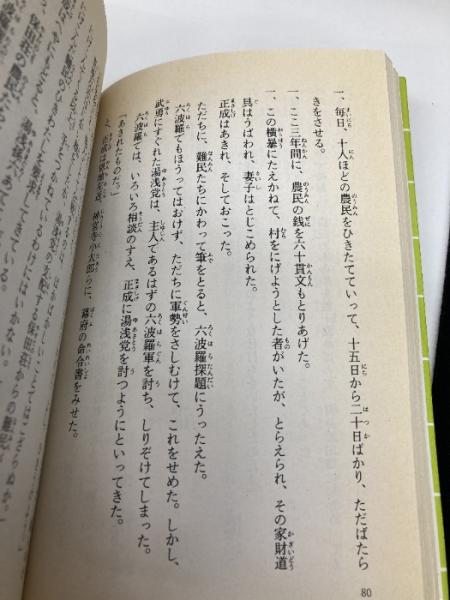 一、毎日、十人ほどの農民をひきたてていって、十五日から二十日ばかり、ただばたら
きをさせる。
一、ここ三年間に、農民の銭を六十貫文もとりあげた。
一、この横暴にたえかねて、村をにげようとした者がいたが、とらえられ、その家財道
具はうばわれ、妻子はとじこめられた。
正成はあきれ、そしておこった。
ただちに、難民たちにかわって筆をとると、六波羅探題にうったえた。
六波羅でもほうってはおけず、ただちに軍勢をさしむけて、これをせめた。しかし、
武勇にすぐれた湯浅党は、主人であるはずの六波羅軍を討ち、しりぞけてしまった。
六波羅では、いろいろ相談のすえ、正成に湯浅党を討つようにといってきた。
「あきれたものだ。」
神宮寺小太郎らに、幕府の命令書をみせた。
80